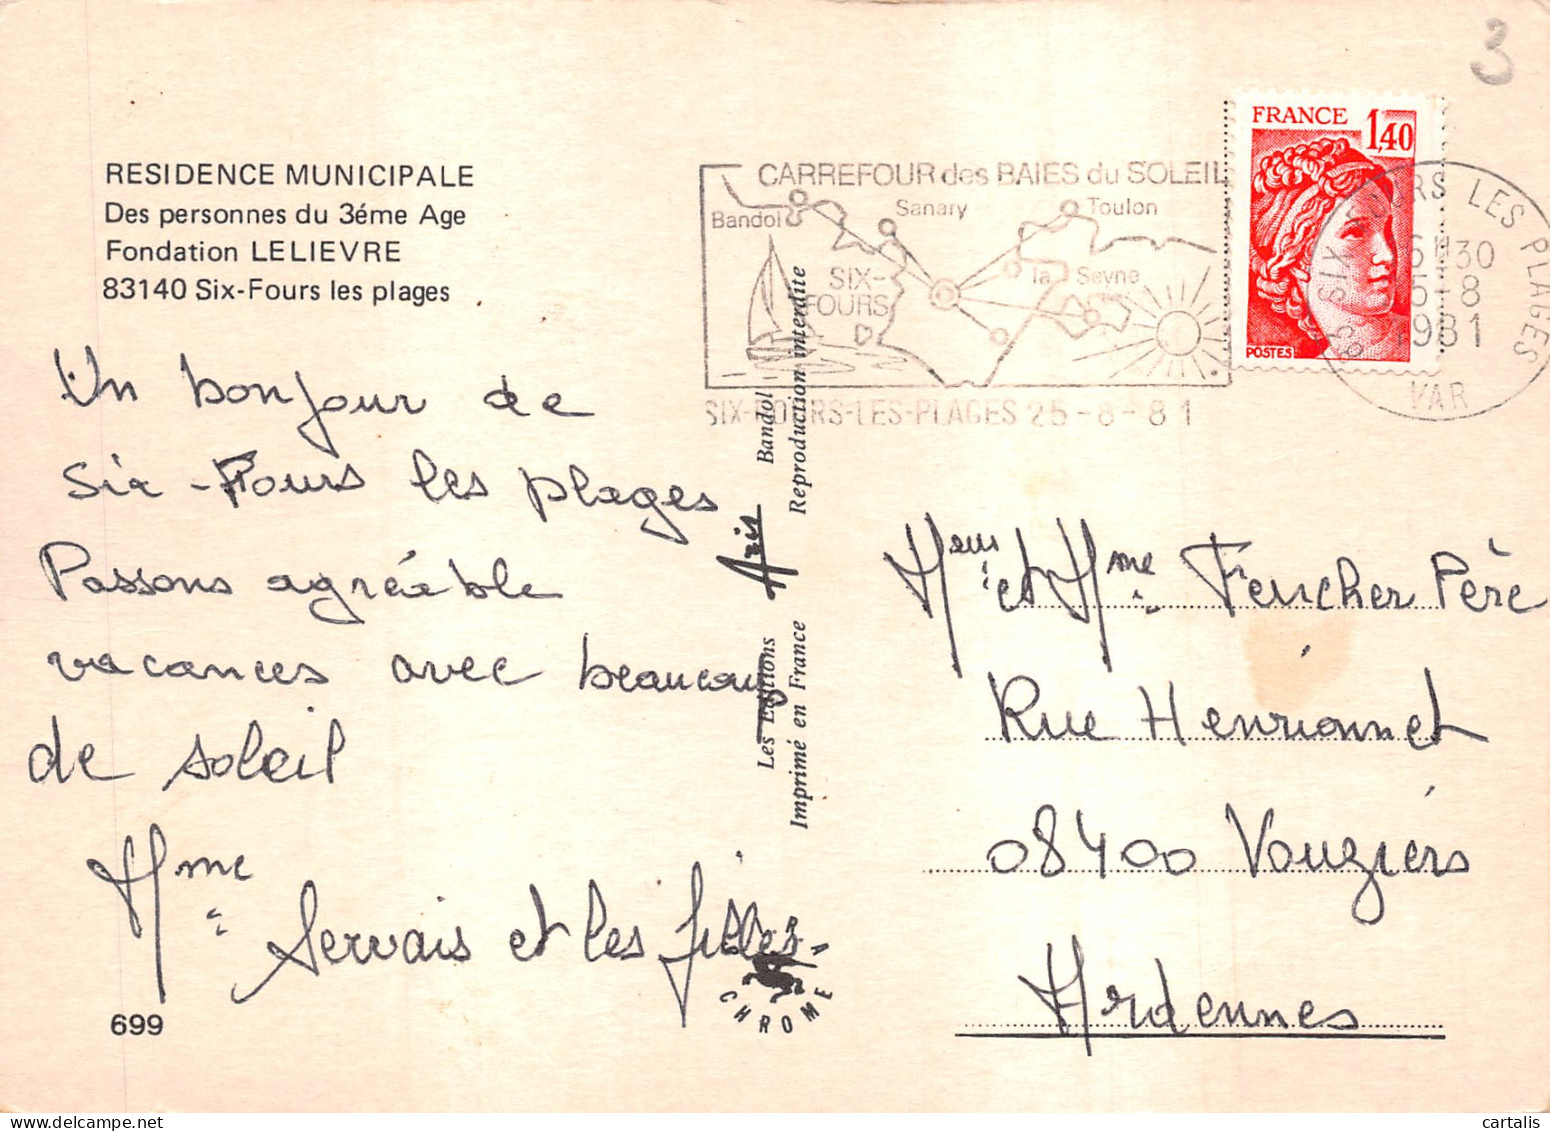 3
RESIDENCE MUNICIPALE
Des personnes du 3éme Age
Fondation LELIEVRE
83140 Six-Fours les plages
Un bonjour de
Six-Fours les plages
Passons agréable
vacances avec beaucoup
de soleil
Mme Servais et les filles
699
CARREFOUR des BAIES du SOLEIL
Bandol
Sanary
Toulon
SIX-
FOURS
la Seyne
SIX-FOURS-LES-PLAGES 25-8-81
FRANCE
1,40
POSTES
83 SIX FOURS LES PLAGES
16H30
25-8
1981
VAR
Les Editions Aris Bandol
Imprimé en France Reproduction interdite
CHROME
Meur et Mme Feucher Père
Rue Henrionnet
08400 Vouziers
Ardennes
cartalis